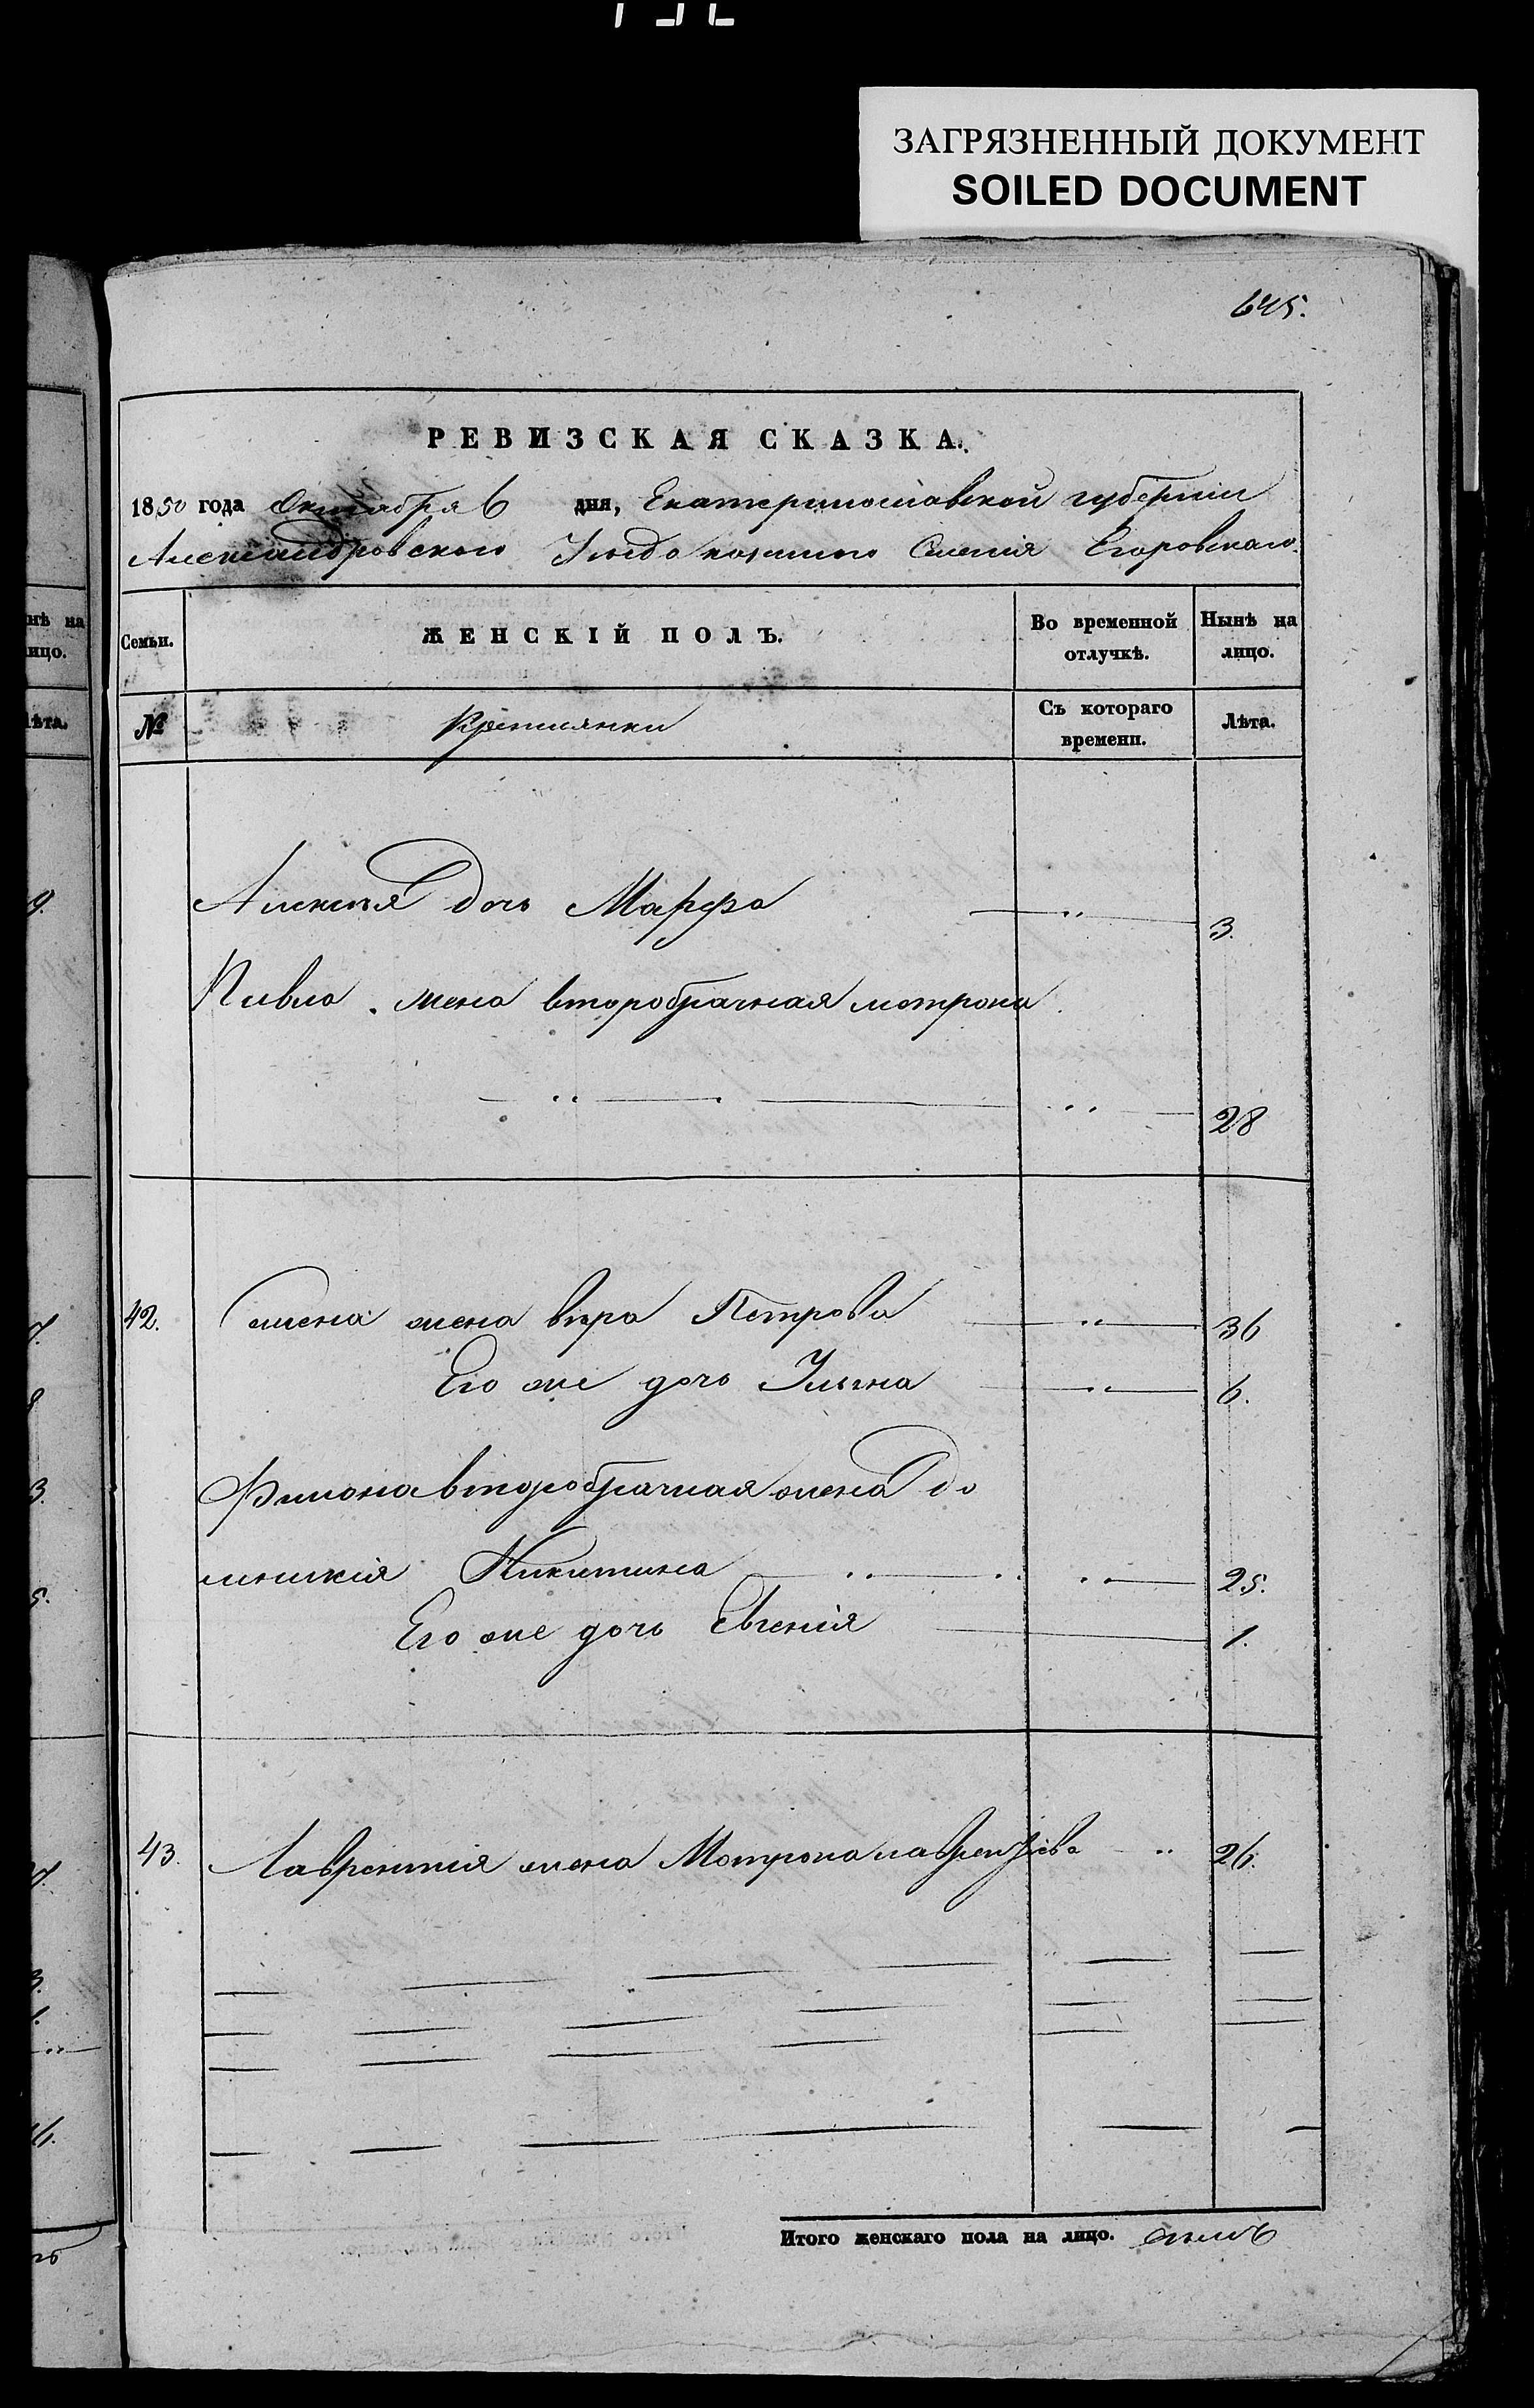 ЗАГРЯЗНЕННЫЙ ДОКУМЕНТ
SOILED DOCUMENT
645.
РЕВИЗСКАЯ СКАЗКА.
1850 года Октября 6 дня, Екатеринославской губернии
Александровского Уезда Имения Егоровскаго
Семьи. ЖЕНСКІЙ ПОЛЪ. Во временной отлучкѣ. Нынѣ на лицо.
№ Крестьянки Съ котораго времени. Лѣта.
Алексѣя дочь Марфа 3.
Павла жена второбрачная мотрона
28
42. Семена жена вѣра Петрова 36
Его же дочь Ульяна 6.
Филиона второбрачная жена До
мникія Никитина 25.
Его же дочь Евгенія 1.
43. Лаврентия жена Мотрона лаврентіева 26.
Итого женскаго пола на лицо. семь